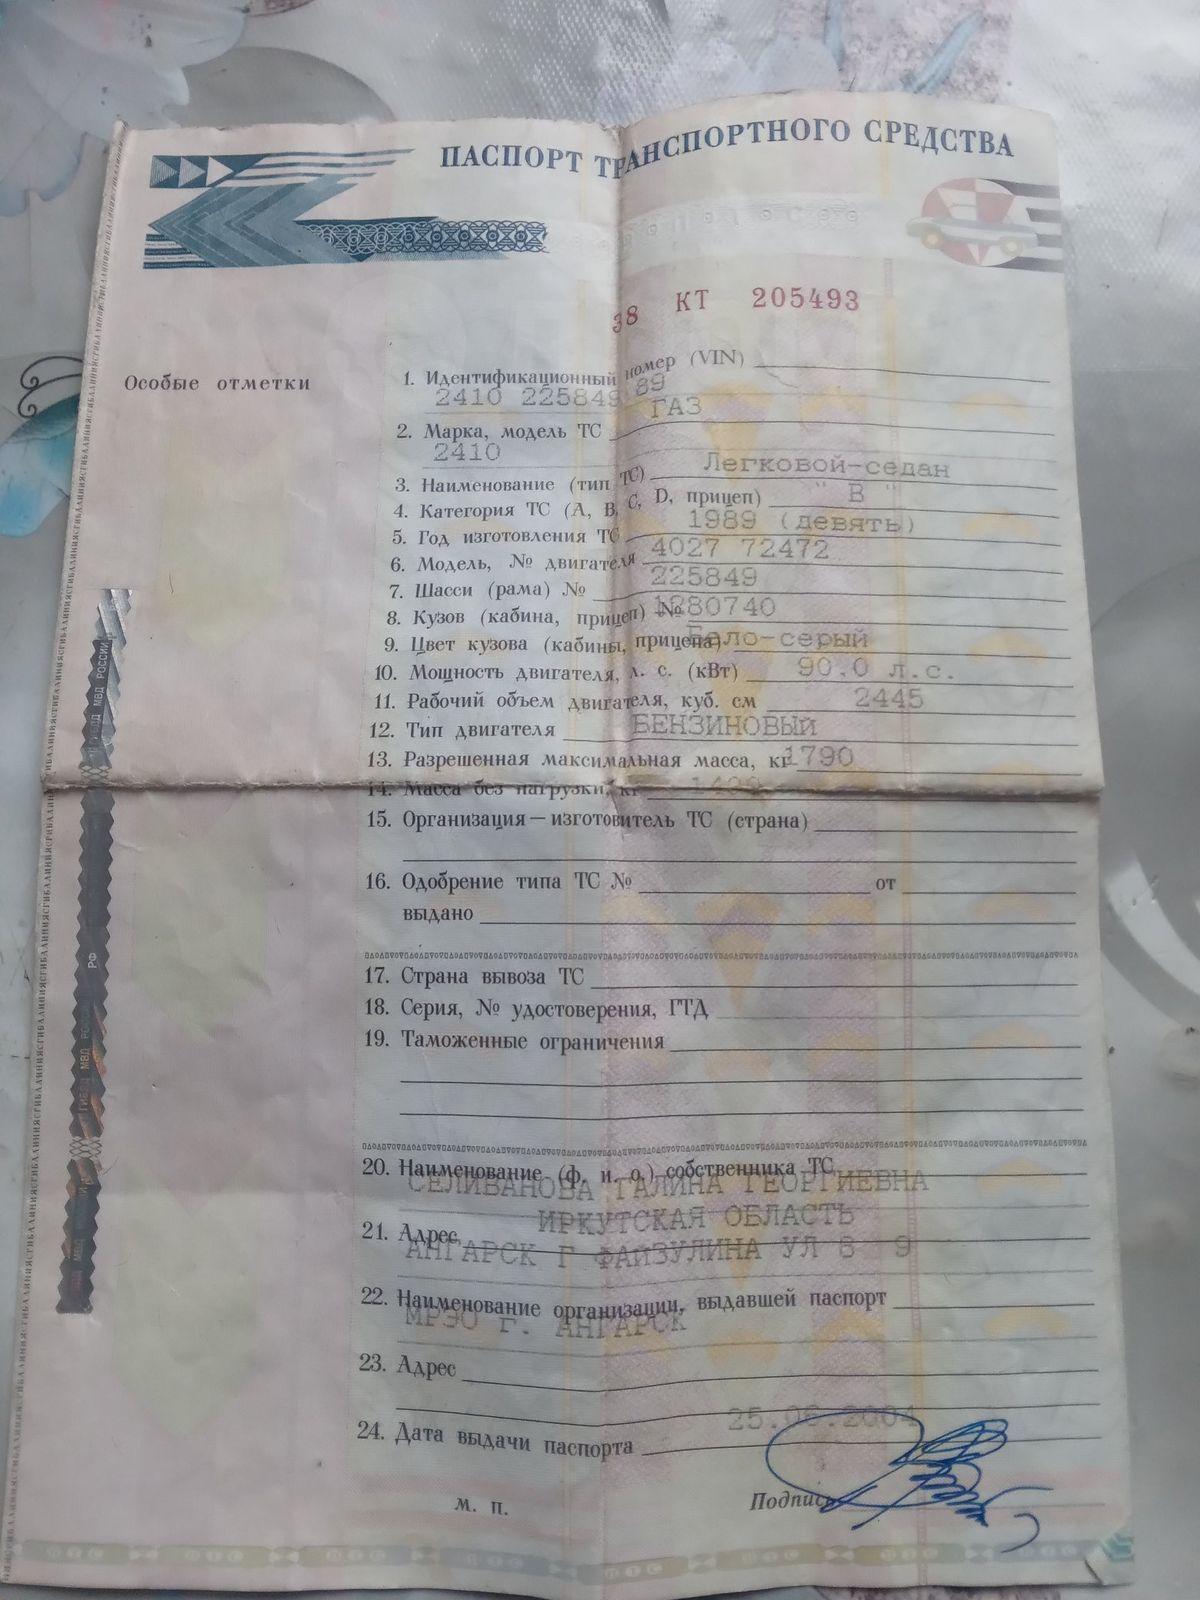 ПАСПОРТ ТРАНСПОРТНОГО СРЕДСТВА
38 КТ 205493
Особые отметки
1. Идентификационный номер (VIN)
2410 225849 89
2. Марка, модель ТС ГАЗ
2410
3. Наименование (тип ТС) Легковой-седан
4. Категория ТС (А, В, С, D, прицеп) "В"
5. Год изготовления ТС 1989 (девять)
6. Модель, № двигателя 4027 72472
7. Шасси (рама) № 225849
8. Кузов (кабина, прицеп) № 1280740
9. Цвет кузова (кабины, прицепа) Бело-серый
10. Мощность двигателя, л. с. (кВт) 90.0 л.с.
11. Рабочий объем двигателя, куб. см 2445
12. Тип двигателя БЕНЗИНОВЫЙ
13. Разрешенная максимальная масса, кг 1790
14. Масса без нагрузки, кг
15. Организация — изготовитель ТС (страна)
16. Одобрение типа ТС № от
выдано
17. Страна вывоза ТС
18. Серия, № удостоверения, ГТД
19. Таможенные ограничения
20. Наименование (ф. и. о.) собственника ТС
СЕЛИВАНОВА ГАЛИНА ГЕОРГИЕВНА
ИРКУТСКАЯ ОБЛАСТЬ
21. Адрес
АНГАРСК Г ФАЙЗУЛИНА УЛ 8 9
22. Наименование организации, выдавшей паспорт
МРЭО г. АНГАРСК
23. Адрес
25.06.2004
24. Дата выдачи паспорта
М. П. Подпись